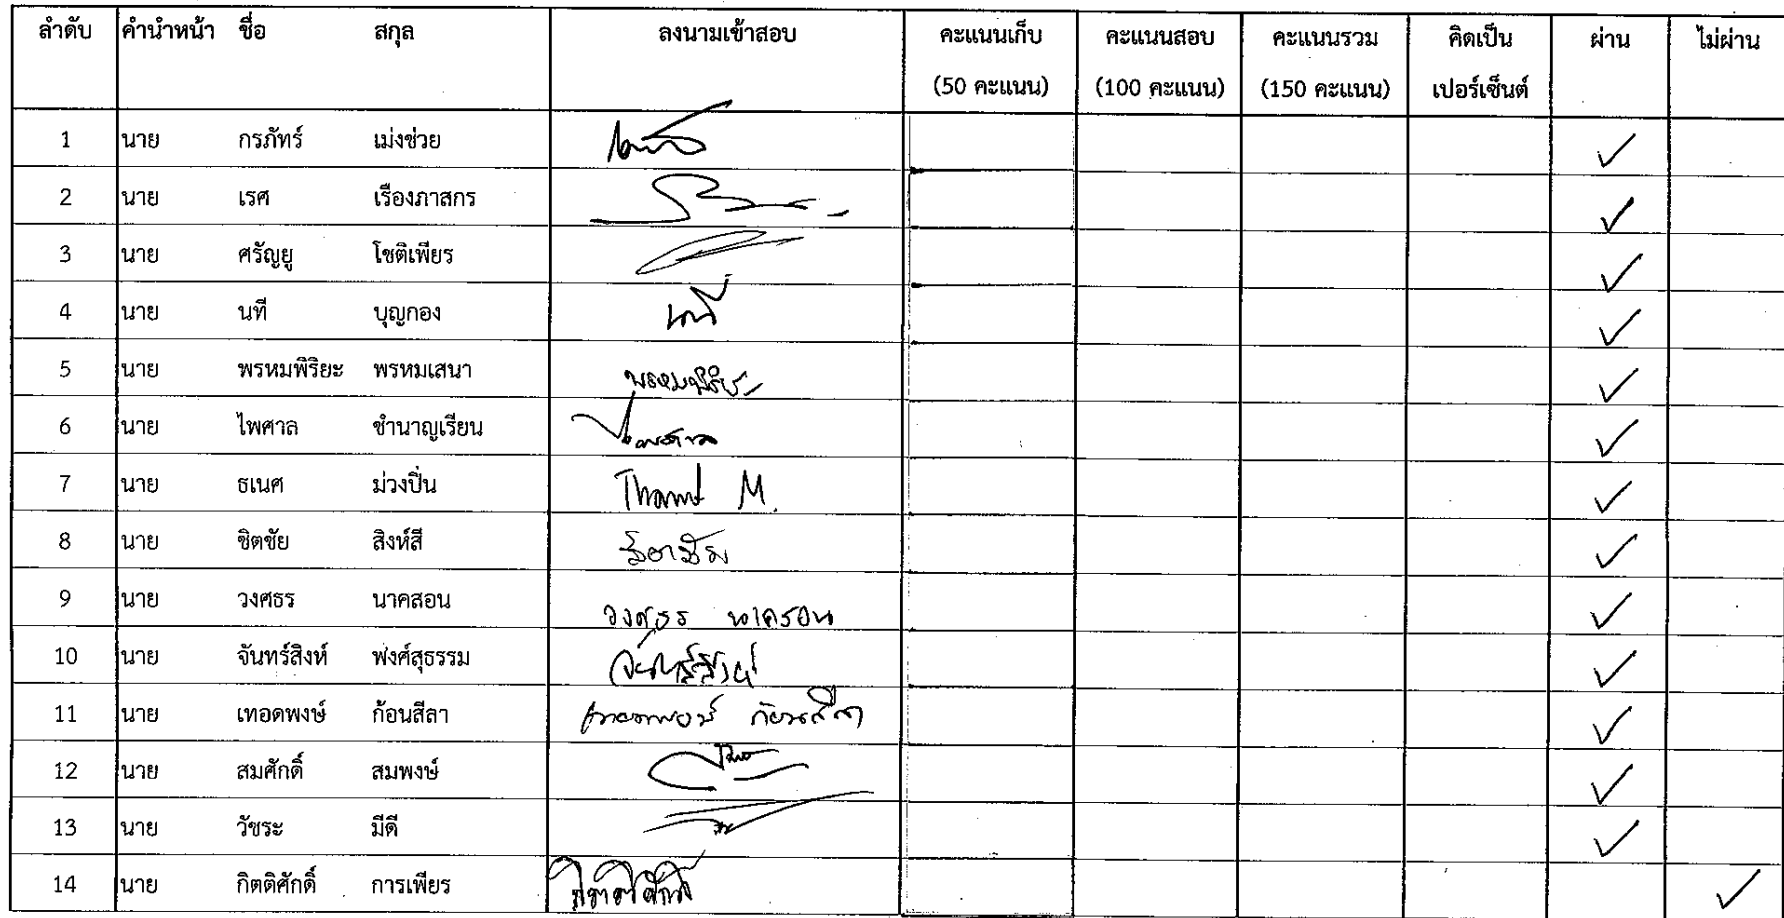 ลำดับ คำนำหน้า ชื่อ สกุล ลงนามเข้าสอบ คะแนนเก็บ คะแนนสอบ คะแนนรวม คิดเป็น ผ่าน ไม่ผ่าน
(50 คะแนน) (100 คะแนน) (150 คะแนน) เปอร์เซ็นต์
1 นาย กรภัทร์ เม่งช่วย ✓
2 นาย เรศ เรืองภาสกร ✓
3 นาย ศรัญยู โชติเพียร ✓
4 นาย นที บุญกอง นที ✓
5 นาย พรหมพิริยะ พรหมเสนา พรหมพิริยะ ✓
6 นาย ไพศาล ชำนาญเรียน ไพศาล ✓
7 นาย ธเนศ ม่วงปิ่น M. ✓
8 นาย ชิตชัย สิงห์สี ✓
9 นาย วงศธร นาคสอน วงศธร นาคสอน ✓
10 นาย จันทร์สิงห์ พ่งศ์สุธรรม จันทร์สิงห์ ✓
11 นาย เทอดพงษ์ ก้อนสีลา เทอดพงษ์ ก้อนสีลา ✓
12 นาย สมศักดิ์ สมพงษ์ ✓
13 นาย วัชระ มีดี ✓
14 นาย กิตติศักดิ์ การเพียร กิตติศักดิ์ ✓